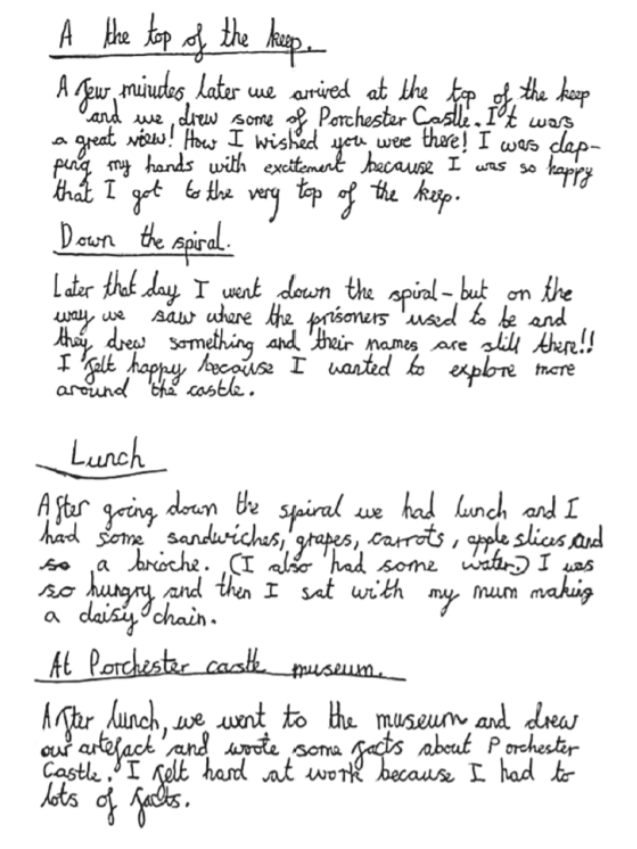 A the top of the keep.
A few miuudes later we arrived at the top of the keep
and we drew some of Porchester Castle. It was
a great view! How I wished you were there! I was clap-
ping my hands with excitement because I was so happy
that I got to the very top of the keep.
Down the spiral.
Later that day I went down the spiral - but on the
way we saw where the prisoners used to be and
they drew something and their names are still there!!
I felt happy because I wanted to explore more
around the castle.
Lunch
After going down the spiral we had lunch and I
had some sandwiches, grapes, carrots, apple slices and
so a brioche. (I also had some water.) I was
so hungry and then I sat with my mum making
a daisy chain.
At Porchester castle museum.
After lunch, we went to the museum and drew
our artefact and wrote some facts about Porchester
Castle. I felt hard at work because I had to
lots of facts.